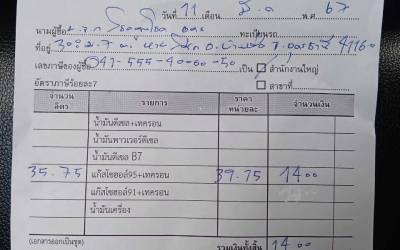 วันที่ 11 เดือน มี.ค พ.ศ 67
นามผู้ซื้อ
ทะเบียนรถ
ที่อยู่ 41160
เลขภาษีของผู้ซื้อ 041-555-40-00-50 เป็น สำนักงานใหญ่
อัตราภาษีร้อยละ7 สาขาที่
จำนวน ลิตร รายการ ราคา หน่วยละ จำนวนเงิน
น้ำมันดีเซล+เทครอน
น้ำมันพาวเวอร์ดีเซล
น้ำมันดีเซล B7
35.75 แก๊สโซฮอล์95+เทครอน 39.15 1400
แก๊สโซฮอล์91+เทครอน
น้ำมันเครื่อง
(เอกสารออกเป็นชุด) รวมเงินทั้งสิ้น 1400